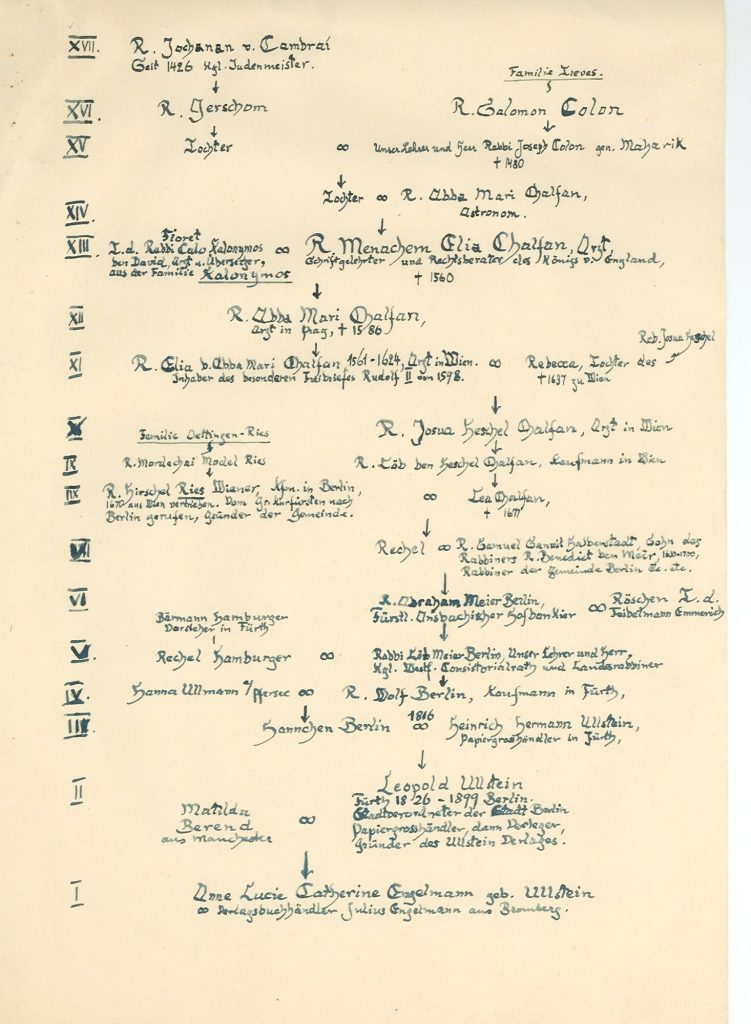 XVII. R. Jochanan v. Cambrai
Seit 1426 Kgl. Judenmeister.
Familie Treves.
XVI. R. Gerschom R. Salomon Colon
XV Tochter ∞ Unser Lehrer und Herr Rabbi Joseph Colon gen. Maharik
† 1480
Tochter ∞ R. Abba Mari Chalfan,
Astronom.
XIV.
Fioret
XIII. T. d. Rabbi Calo Kalonymos ∞ R. Menachem Elia Chalfan, Arzt,
ben David, Arzt u. Übersetzer, Schriftgelehrter und Rechtsberater des Königs v. England,
aus der Familie Kalonymos † 1560
XII R. Abba Mari Chalfan,
Arzt in Prag, † 1586
Rab. Josua Heschel
XI R. Elia b. Abba Mari Chalfan 1561-1624, Arzt in Wien. ∞ Rebecca, Tochter des
Inhaber des besonderen Freibriefes Rudolf II von 1598. † 1637 zu Wien
X. Familie Oettingen-Ries R. Josua Heschel Chalfan, Arzt in Wien
IX R. Mordechai Model Ries R. Löb ben Heschel Chalfan, Kaufmann in Wien
IIX R. Hirschel Ries Wiener, Kfm. in Berlin, ∞ Lea Chalfan,
1670 aus Wien vertrieben. Vom Gr. Kurfürsten nach † 1677
Berlin gerufen, Gründer der Gemeinde.
VII Rechel ∞ R. Samuel Sanwil Halberstadt Sohn des
Rabbiners R. Benedict ben Meir,
Rabbiner der Gemeinde Berlin etc. etc.
VI R. Abraham Meier Berlin, ∞ Röschen T. d.
Fürstl. Ansbachischer Hofbankier Teibelmann Emmerich
Bärmann Hamburger
Vorsteher in Fürth
V. Rechel Hamburger ∞ Rabbi Löb Meier Berlin, Unser Lehrer und Herr,
Kgl. Westf. Consistorialrath und Landesrabbiner
IV. Hanna Ullmann a/Pfersee ∞ R. Wolf Berlin, Kaufmann in Fürth,
III. Hannchen Berlin 1816 ∞ Heinrich Hermann Ullstein,
Papiergrosshändler in Fürth,
II Leopold Ullstein
Fürth 1826 - 1899 Berlin.
Matilda ∞ Stadtverordneter der Stadt Berlin
Berend Papiergrosshändler, dann Verleger,
aus Manchester Gründer des Ullstein Verlages.
I Anne Lucie Catherine Engelmann geb. Ullstein
∞ Verlagsbuchhändler Julius Engelmann aus Bromberg.